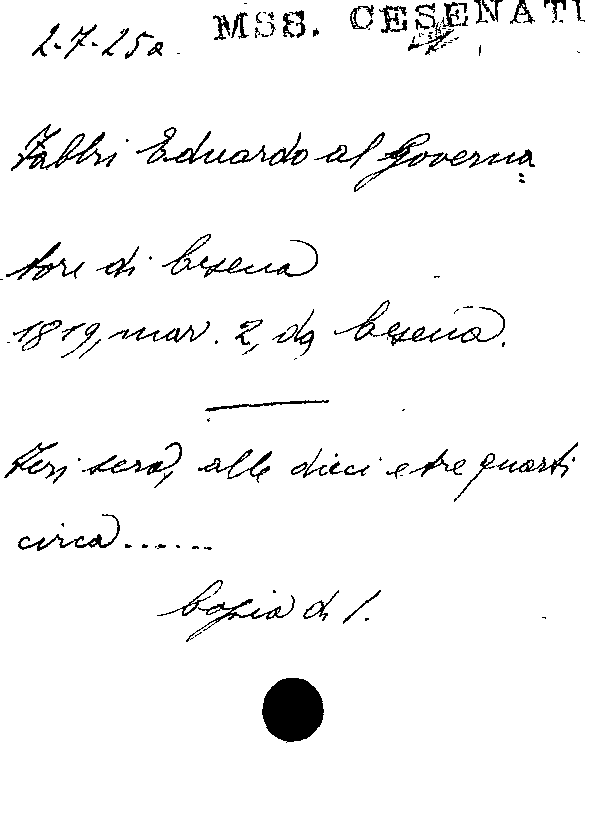 2-7-25a MSS. CESENATI
Fabbri Eduardo al Governa
tore di Cesena
1819, mar. 2, da Cesena.
Ieri sera, alle dieci e tre quarti
circa......
Copia di 1.